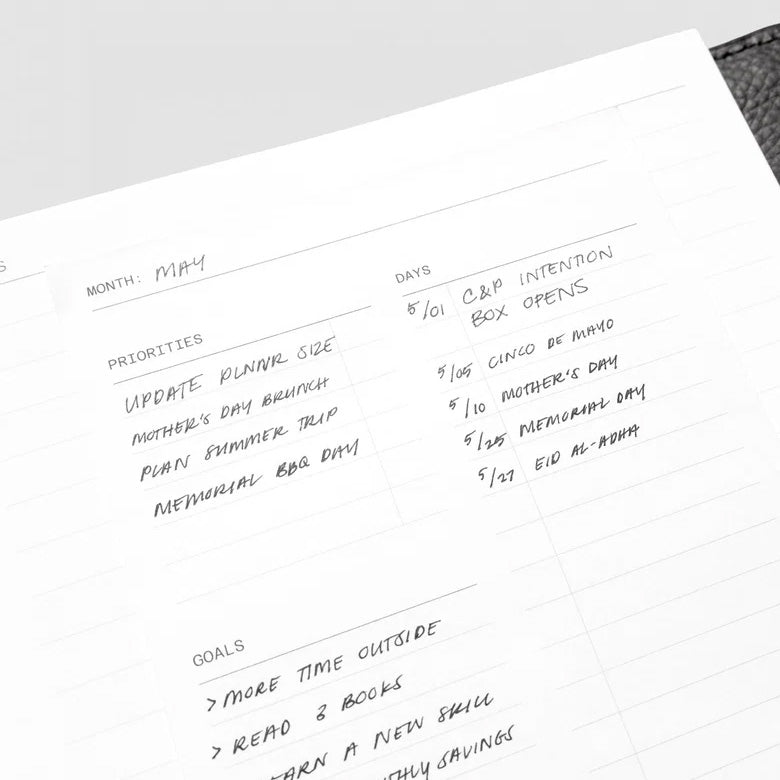 MONTH: MAY
PRIORITIES
UPDATE PLNNR SIZE
MOTHER'S DAY BRUNCH
PLAN SUMMER TRIP
MEMORIAL BBQ DAY
DAYS
5/01 C&P INTENTION
BOX OPENS
5/05 CINCO DE MAYO
5/10 MOTHER'S DAY
5/25 MEMORIAL DAY
5/27 EID AL-ADHA
GOALS
> MORE TIME OUTSIDE
> READ 3 BOOKS
A NEW SKILL
SAVINGS